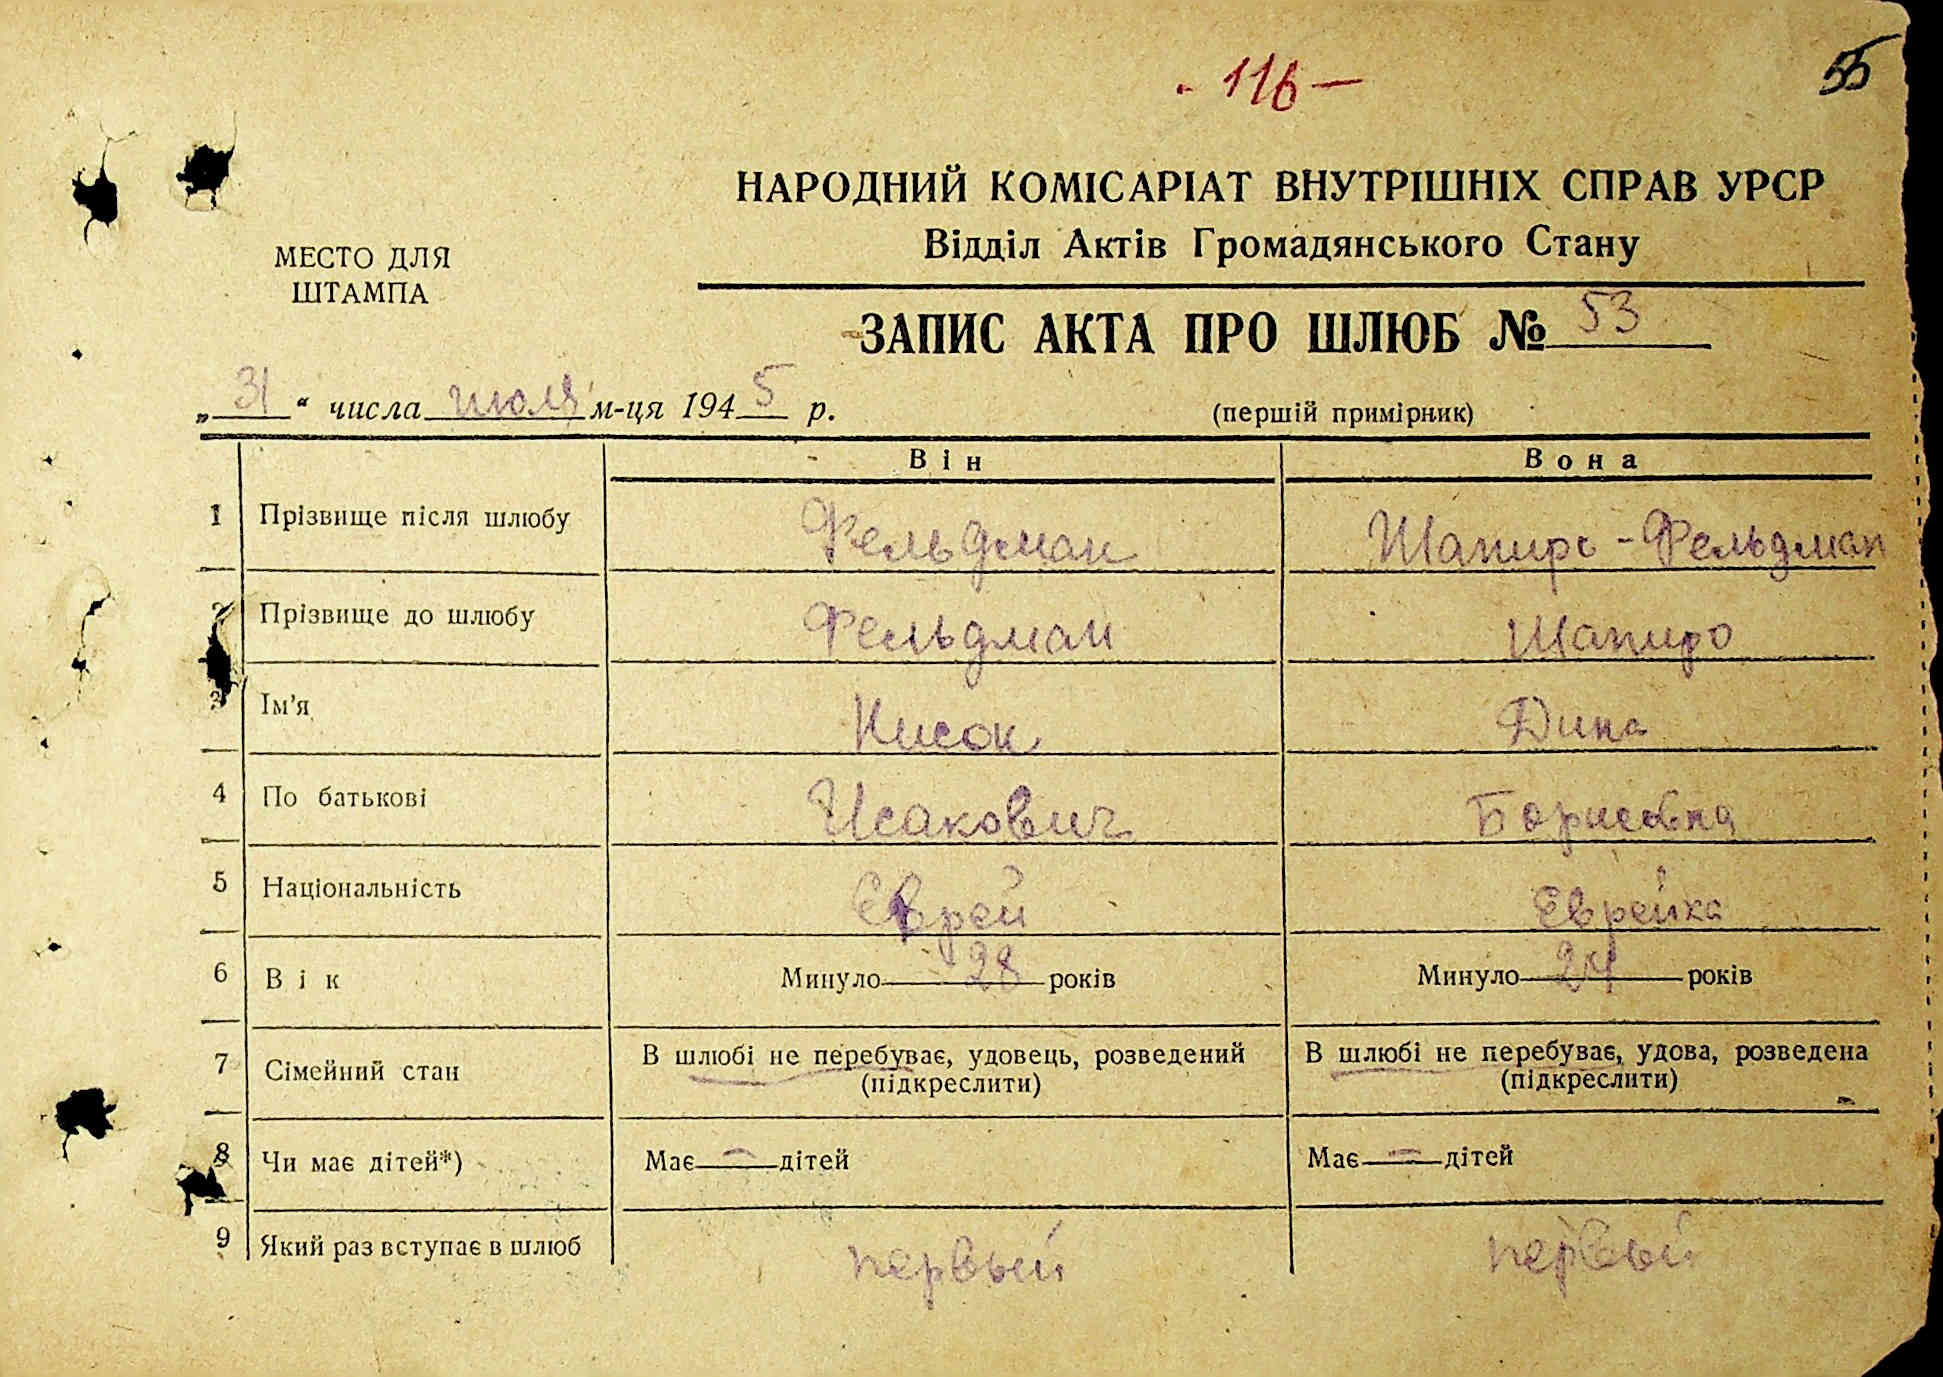 - 116 -
55
НАРОДНИЙ КОМІСАРІАТ ВНУТРІШНІХ СПРАВ УРСР
Відділ Актів Громадянського Стану
МЕСТО ДЛЯ
ШТАМПА
ЗАПИС АКТА ПРО ШЛЮБ № 53
„31“ числа июля м-ця 1945 р.
(першій примірник)
Він Вона
1 Прізвище після шлюбу Фельдман Шапиро-Фельдман
2 Прізвище до шлюбу Фельдман Шапиро
3 Ім'я Кисок Дина
4 По батькові Исакович Борисовна
5 Національність Еврей Еврейка
6 Вік Минуло 28 років Минуло 24 років
7 Сімейний стан В шлюбі не перебуває, удовець, розведений В шлюбі не перебуває, удова, розведена
(підкреслити) (підкреслити)
8 Чи має дітей*) Має — дітей Має — дітей
9 Який раз вступає в шлюб первый первый